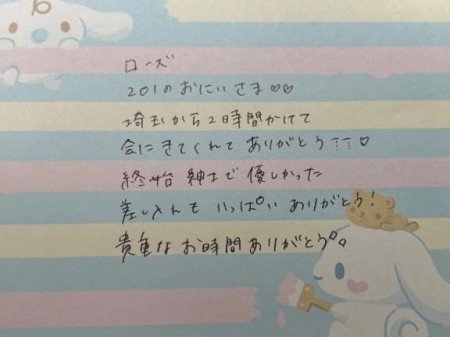 ローズ
201のおにいさま♡♡
埼玉から2時間かけて
会にきてくれてありがとう¨¨♡
終始紳士で優しかった
差し入れも いっぱい ありがとう!
貴重なお時間ありがとう°。